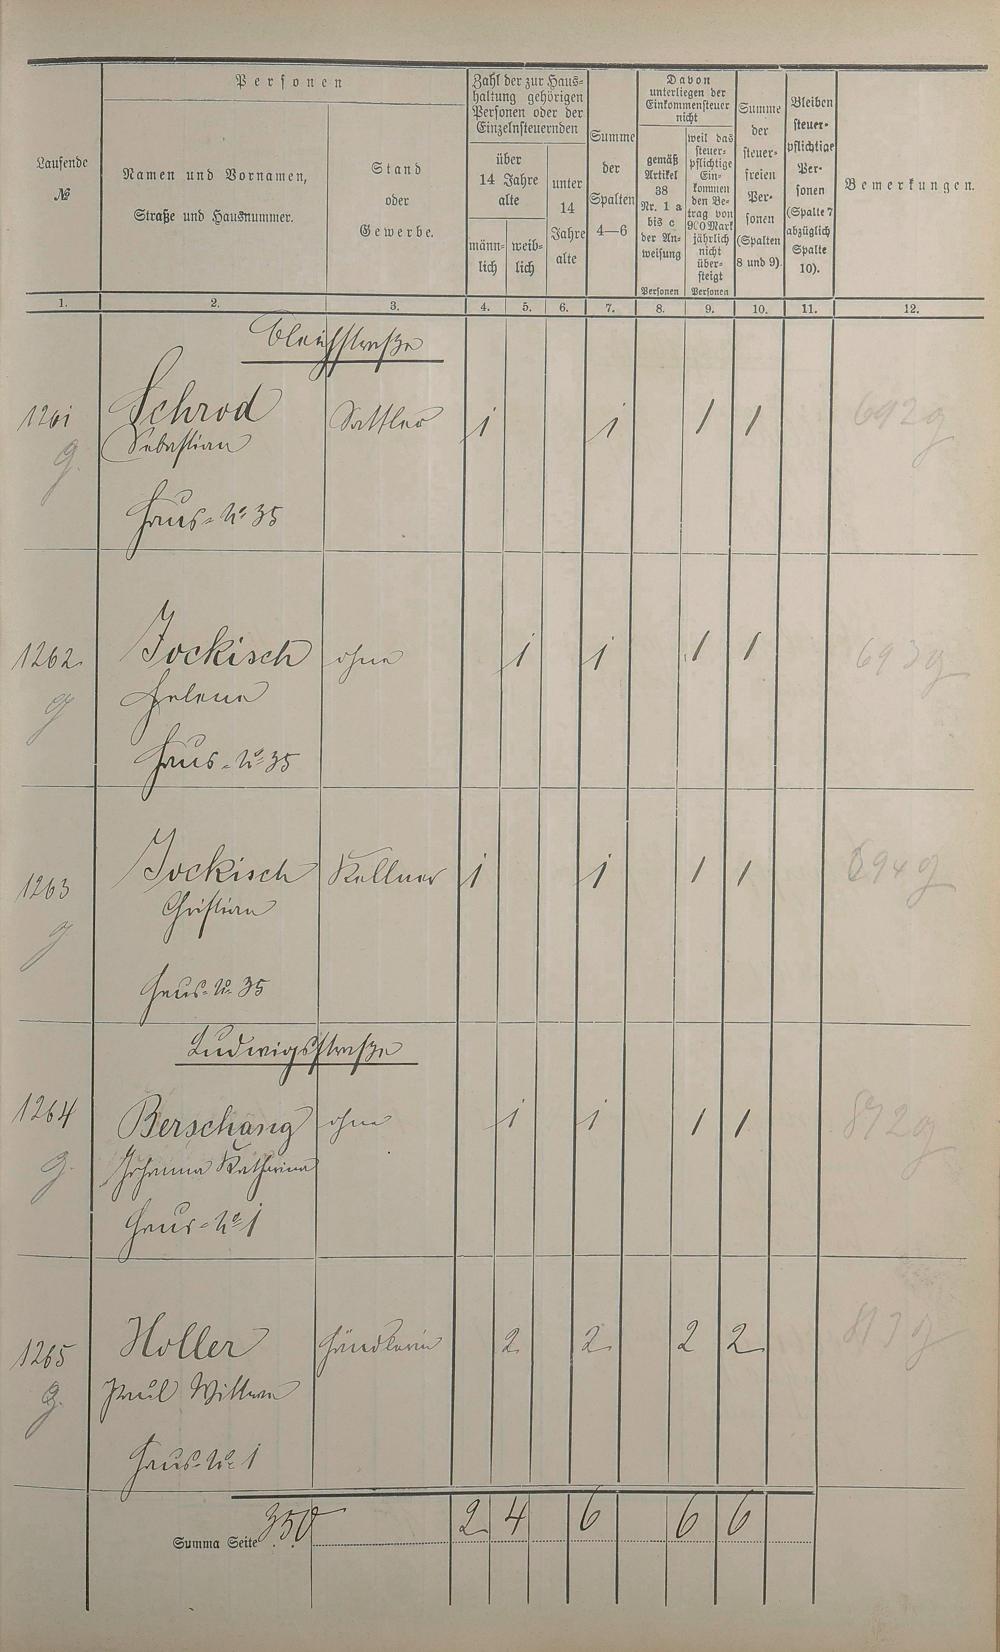 Personen
Laufende
№
Namen und Vornamen,
Straße und Hausnummer.
Stand
oder
Gewerbe.
Zahl der zur Haus-
haltung gehörigen
Personen oder der
Einzelnsteuernden
über
14 Jahre
alte
männ-
lich
weib-
lich
unter
14
Jahre
alte
Summe
der
Spalten
4—6
Davon
unterliegen der
Einkommensteuer
nicht
gemäß
Artikel
38
Nr. 1 a
bis c
der An-
weisung
Personen
weil das
steuer-
pflichtige
Ein-
kommen
den Be-
trag von
900 Mark
jährlich
nicht
über-
steigt
Personen
Summe
der
steuer-
freien
Per-
sonen
(Spalten
8 und 9).
Bleiben
steuer-
pflichtige
Per-
sonen
(Spalte 7
abzüglich
Spalte
10).
Bemerkungen.
1. 2. 3. 4. 5. 6. 7. 8. 9. 10. 11. 12.
Bleichstraße
1261 Schrod Sattler 1 1 1 1 692 g
g. Sebastian
Haus-No 35
1262 Jockisch ohne 1 1 1 1 693 g
g Helene
Haus-No 35
1263 Jockisch Kellner 1 1 1 1 694 g
g Christian
Haus-No 35
Ludwigsstraße
1264 Berschang ohne 1 1 1 1 872 g
g. Johanna Katharina
Haus-No 1
1265 Holler Händlerin 2 2 2 2 g
g. Paul Wittwe
Haus-No 1
Summa Seite 350 2 4 6 6 6